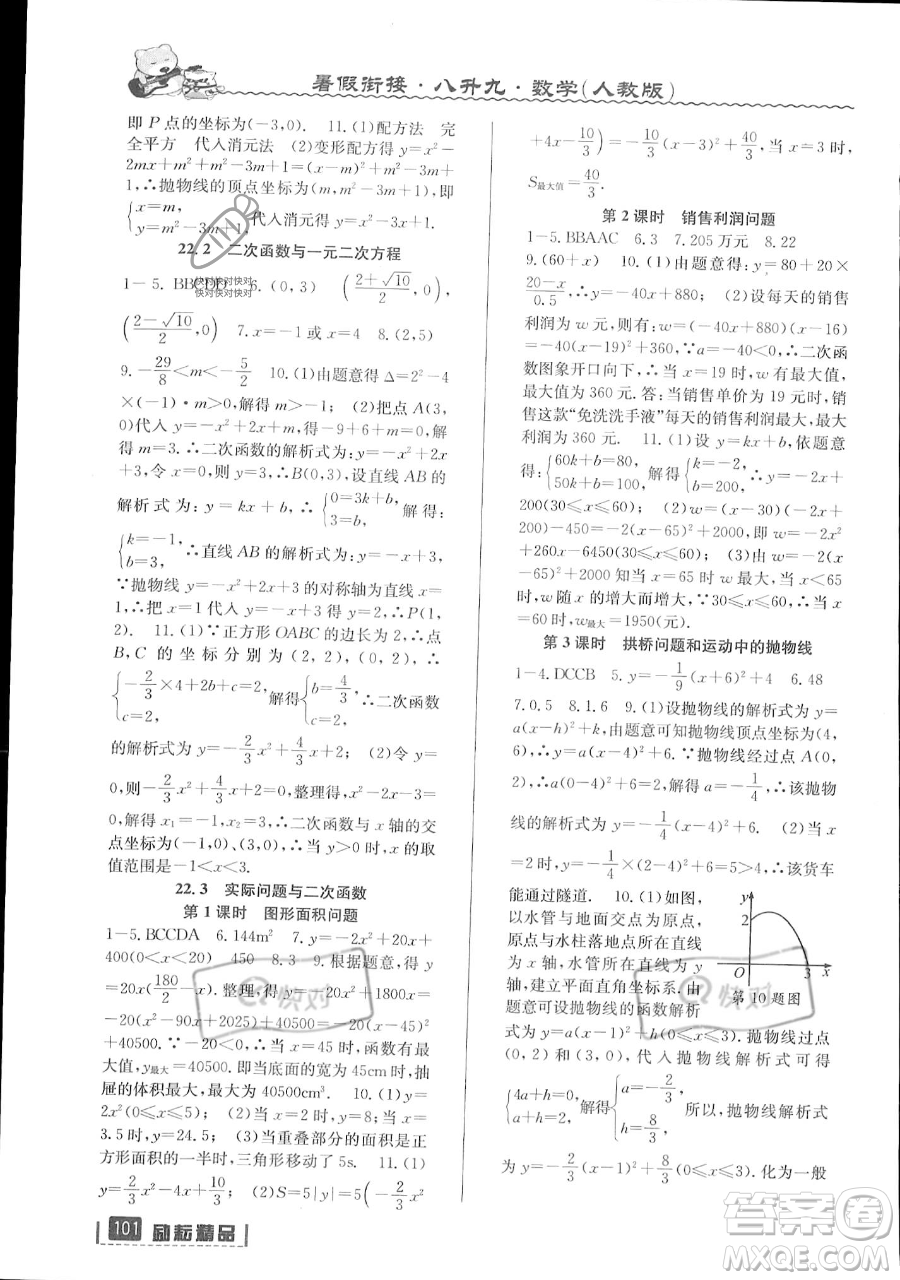 暑假衔接·八升九·数学(人教版)
即 P 点的坐标为(-3,0). 11.(1)配方法 完
全平方 代入消元法 (2)变形配方得 y=x²-
2mx+m²+m²-3m+1=(x-m)²+m²-3m
+1,∴抛物线的顶点坐标为(m,m²-3m+1),即
{x=m, y=m²-3m+1, 代入消元得 y=x²-3x+1.
22.2 二次函数与一元二次方程
1-5. BBCDD 6.(0,3) ((2+√10)/2,0)
((2-√10)/2,0) 7.x=-1 或 x=4 8.(2,5)
9.-29/8<m<-5/2 10.(1)由题意得 Δ=2²-4
×(-1)·m>0,解得 m>-1. (2)把点 A(3,
0)代入 y=-x²+2x+m,得-9+6+m=0,解
得 m=3.∴二次函数的解析式为:y=-x²+2x
+3.令 x=0,则 y=3.∴B(0,3),设直线 AB 的
解析式为:y=kx+b,∴{0=3k+b, 3=b, 解得:
{k=-1, b=3, ∴直线 AB 的解析式为:y=-x+3,
∵抛物线 y=-x²+2x+3 的对称轴为直线 x=
1,∴把 x=1 代入 y=-x+3 得 y=2,∴P(1,
2). 11.(1)∵正方形 OABC 的边长为 2,∴点
B,C 的坐标分别为(2,2),(0,2),∴
{-2/3×4+2b+c=2, c=2, 解得{b=4/3, c=2, ∴二次函数
的解析式为 y=-2/3x²+4/3x+2. (2)令 y=
0,则-2/3x²+4/3x+2=0,整理得,x²-2x-3=
0,解得 x₁=-1,x₂=3,∴二次函数与 x 轴的交
点坐标为(-1,0)、(3,0),∴当 y>0 时,x 的取
值范围是-1<x<3.
22.3 实际问题与二次函数
第 1 课时 图形面积问题
1-5. BCCDA 6.144m² 7.y=-2x²+20x+
400(0<x<20) 450 8.3 9.根据题意,得 y=
20x(180/2-x).整理,得 y=-20x²+1800x=
-20(x²-90x+2025)+40500=-20(x-45)²
+40500.∵-20<0,∴当 x=45 时,函数有最
大值,y最大=40500.即当底面的宽为 45cm 时,抽
屉的体积最大,最大为 40500cm³ 10.(1)y=
2x²(0≤x≤5) (2)当 x=2 时,y=8;当 x=
3.5 时,y=24.5; (3)当重叠部分的面积是正
方形面积的一半时,三角形移动了 5s. 11.(1)
y=2/3x²-2/3x-4; (2)S=5|y|=5(-2/3x²
+2/3x+4)=
+4x-10/3)=-10/3(x-3)²+40/3,当 x=3 时,
S最大值=40/3.
第 2 课时 销售利润问题
1-5. BBAAC 6.3 7.205 万元 8.22
9.(60+x) 10.(1)根据题意得:y=80+20×
(20-x)/0.5=-40x+880; (2)设每天的销售
利润为 w 元,则有:w=(-40x+880)(x-16)
=-40(x-19)²+360,∵a=-40<0,∴二次函
数图象开口向下,∴当 x=19 时,w 有最大值,
最大值为 360 元.答:当销售单价为 19 元时,销
售这款“免洗洗手液”每天的销售利润最大,最大
利润为 360 元. 11.(1)设 y=kx+b,依题意
得:{60k+b=80, 50k+b=100, 解得{k=-2, b=200, ∴y=-2x+
200(30≤x≤60); (2)w=(x-30)(-2x+
200)-450=-2(x-65)²+2000,即 w=-2x²
+260x-6450(30≤x≤60); (3)w=-2(x
-65)²+2000 当 x=65 时,w 最大,当 x<65
时,w 随 x 的增大而增大,∵30≤x≤60,∴x
=60 时,w最大=1950(元).
第 3 课时 拱桥问题和运动中的抛物线
1-4. DCCB 5.y=-1/9(x+6)²+4 6.48
7.0.5 8.1.6 9.(1)设抛物线的解析式为 y=
a(x-h)²+k,由题意可知抛物线顶点坐标为(4,
6),∴y=a(x-4)²+6,∵抛物线经过点 A(0,
2),∴2=a(0-4)²+6,解得 a=-1/4,∴该抛物
线的解析式为 y=-1/4(x-4)²+6. (2)当 x
=2 时,y=-1/4(2-4)²+6=5>4,∴该货车
能通过隧道. 10.(1)如图,
以水管与地面交点为原点,
原点与水柱落地点所在直线
为 x 轴,水管所在直线为 y
轴,建立平面直角坐标系,由
题意可设抛物线的函数解析
式为 y=a(x-1)²+h(0≤x≤3).抛物线过点
(0,2)和(3,0),代入抛物线解析式可得
{4a+h=0, a+h=2, 解得{a=-2/3, h=8/3, 所以,抛物线解析式
为 y=-2/3(x-1)²+8/3(0≤x≤3).化为一般
y
2
O
3
x
第 10 题图
快对快对快对
快对快对快对
快对
快对
101 励耘精品
答案圈
MXQE.COM